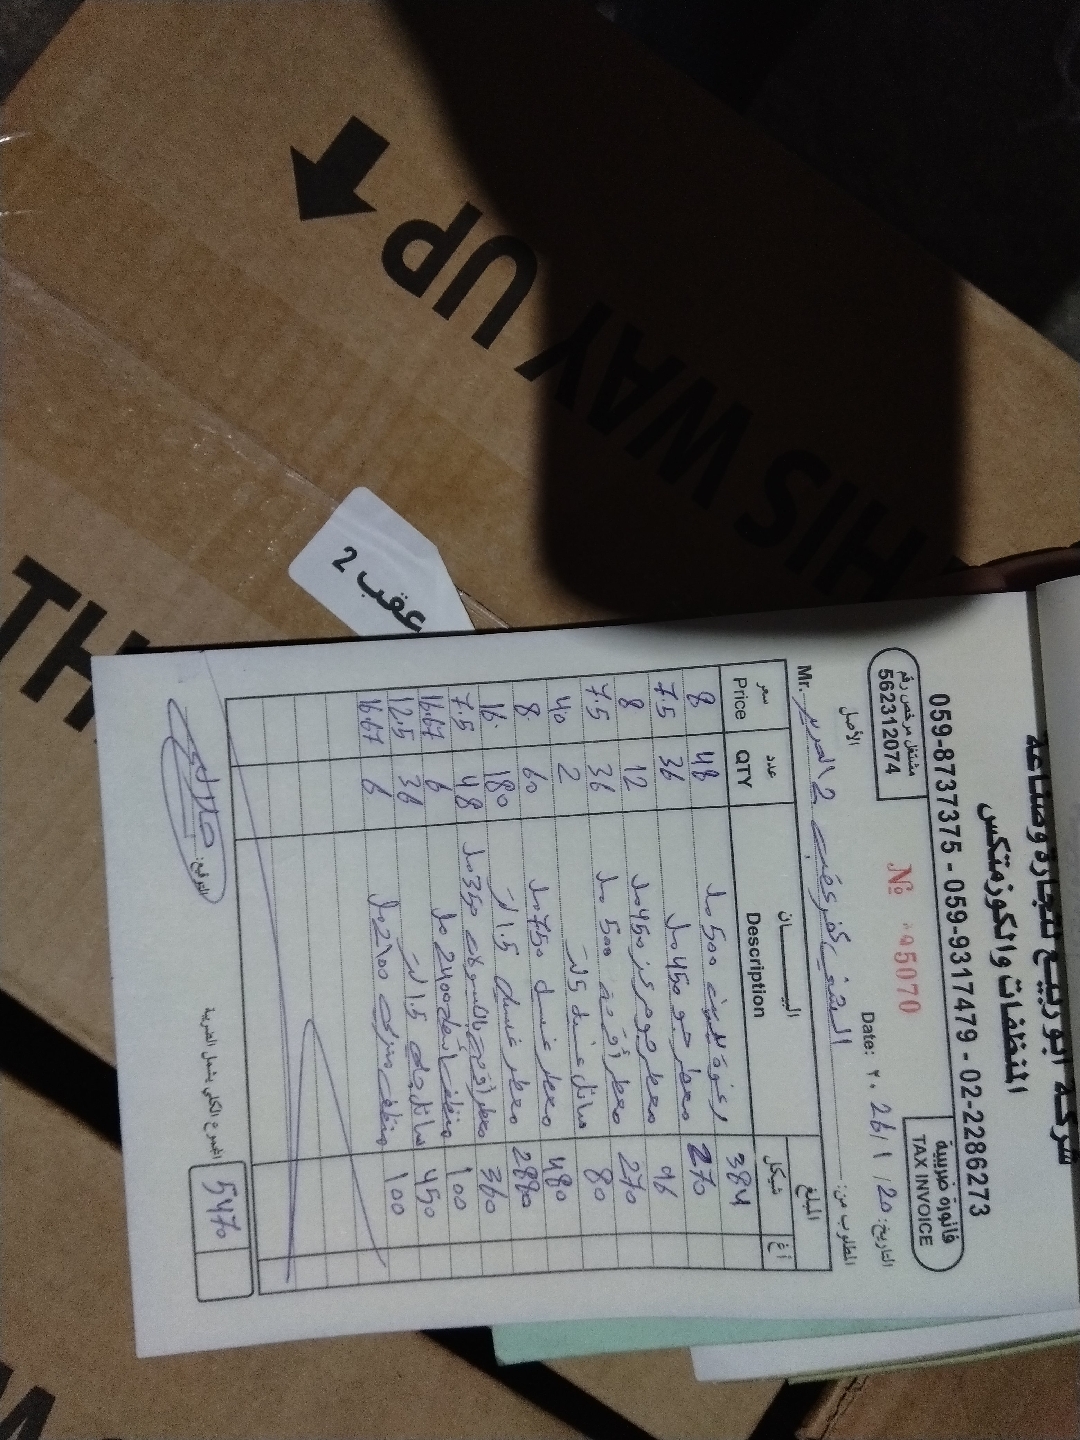 شركة ابو ربيع لتجارة وصناعة
المنظفات والكوزمتكس
059-8737375 - 059-9317479 - 02-2286273
مشتغل مرخص رقم
562312074
№ 005070
فاتورة ضريبية
TAX INVOICE
الأصل
Date: ٢٠26/1/20 التاريخ:
Mr. المطلوب من:
سعر Price عدد QTY البيـــــــان Description المبلغ
شيكل أغ
8 48 500 مل 384
7.5 36 معطر جو 450 مل 270
8 12 معطر جو 450 مل 96
7.5 36 معطر أقمشة 500 مل 270
40 2 سائل 5 لتر 80
8 60 معطر غسيل 750 مل 480
16 180 معطر غسيل 1.5 لتر 2880
7.5 48 معطر 350 مل 360
16.67 6 منظف 2400 مل 100
12.5 36 سائل جلي 1.5 لتر 450
16.67 6 منظف 2100 مل 100
المجموع الكلي يشمل الضريبة 5470
التوقيع:
عقب 2
THIS WAY UP
TH